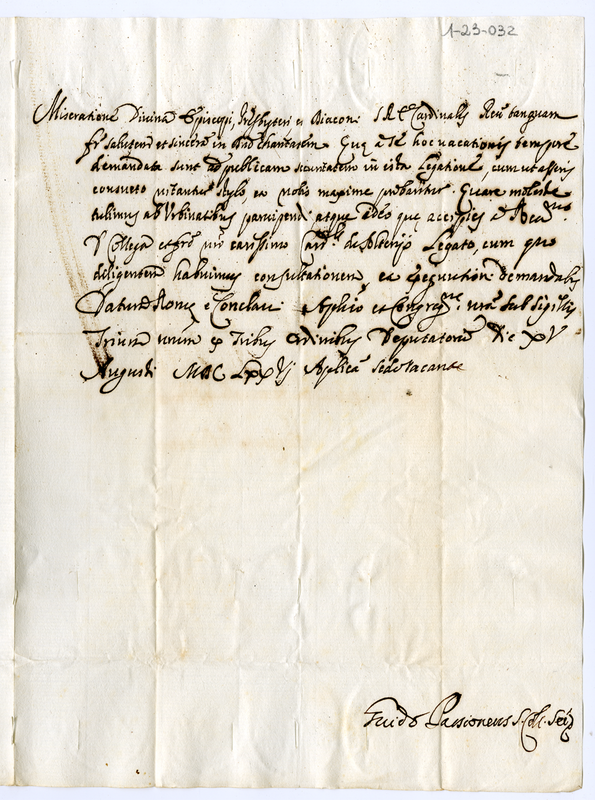 1-23-032
Miseratione Divina Episcopi, Presbyteri et Diaconi S. R. E. Cardinales Reu. tanquam
fr. salutem et sinceram in Dno charitatem. Que a Te hoc vacationis tempore
demandata sunt ad publicam securitatem in ista Legatione, cum ut asseris
consueto utantur stylo, ea nobis maxime probantur. Quare moleste
tulimus ab Urbinatibus parvipendi atque adeo que acceptes a
Collega et frd nri carissimo Card. de Legato, cum quo
diligentem habuimus consultationem ea executioni demandabis
Datum Rome e Conclavi Aplico et Congregne. nra sub Sigillis
Trium nrum ex Tribus Ordinibus Deputatorum Die XV
Augusti MDCLXXVI Aplica Sede Vacante
Guido Passioneus S. Coll. Sec